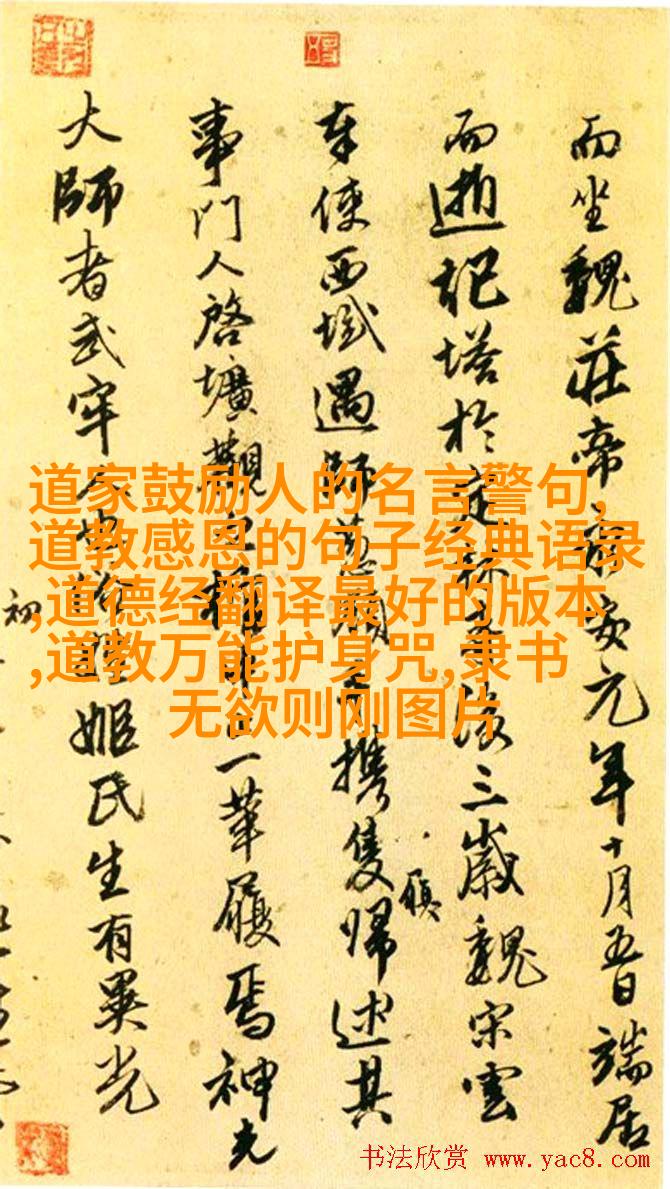 而坐魏莊帝安元年十月五日端居
而逝記塔於定林寺後三歲魏宋雲
奉使西域遇師葱嶺手携隻歸述其
履
事門人啓壙觀一革履焉神光
大師者武牢人也姬氏生有異光
初
道家鼓励人的名言警句,
道教感恩的句子经典语录
,道德经翻译最好的版本
,道教万能护身咒,隶书
无欲则刚图片
书法欣赏 www.yac8.com